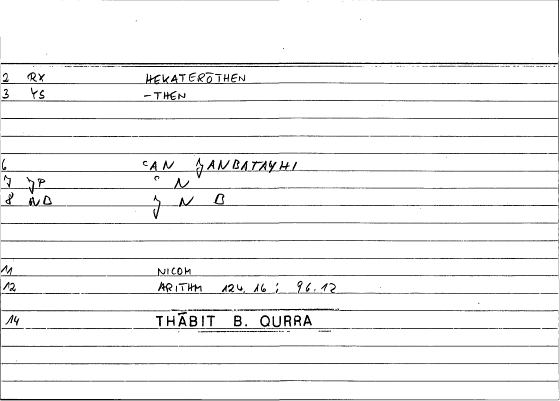 2 RX HEKATERŌTHEN
3 YS -THEN
6 ʿAN ǦANBATAYHI
7 ǦP ʿ N
8 ND Ǧ N B
11 NICOM
12 ARITHM 124.16 ; 96.12
14 THĀBIT B. QURRA